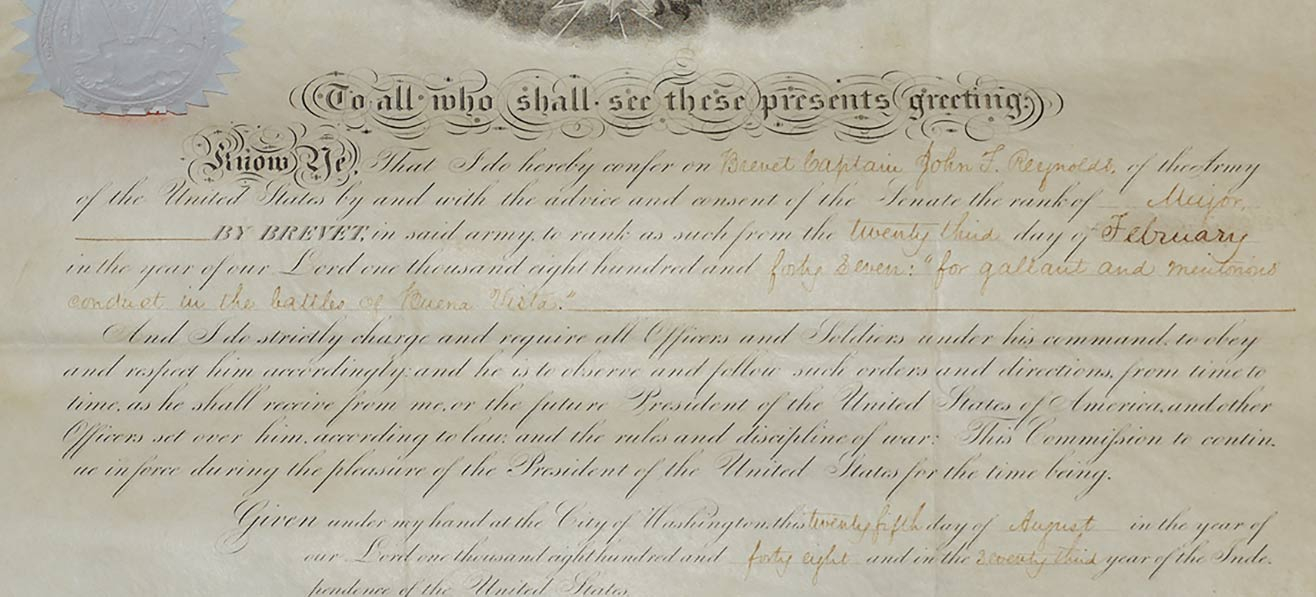 To all who shall see these presents greeting:
Know Ye, That I do hereby confer on Brevet Captain John F. Reynolds, of the Army
of the United States by and with the advice and consent of the Senate the rank of Major
BY BREVET, in said army, to rank as such from the twenty third day of February
in the year of our Lord one thousand eight hundred and forty Seven: "for gallant and meritorious
conduct in the battles of Buena Vista."
And I do strictly charge and require all Officers and Soldiers under his command, to obey
and respect him accordingly: and he is to observe and follow such orders and directions, from time to
time, as he shall receive from me, or the future President of the United States of America, and other
Officers set over him, according to law: and the rules and discipline of war: This Commission to contin-
ue in force during the pleasure of the President of the United States for the time being.
Given under my hand at the City of Washington, this twenty fifth day of August in the year of
our Lord one thousand eight hundred and forty eight and in the Seventy third year of the Inde-
pendence of the United States.